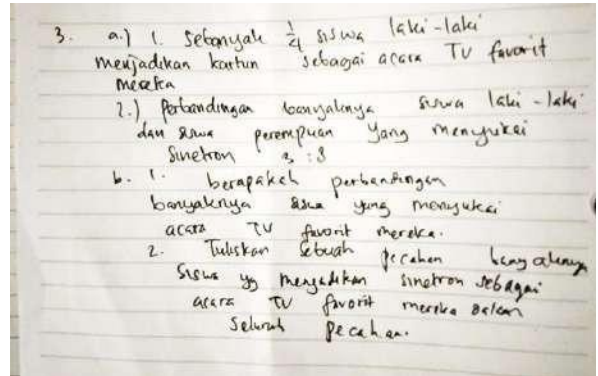 3. a.) 1. Sebanyak 1/4 siswa laki-laki
menjadikan kartun sebagai acara TV favorit
mereka
2.) perbandingan banyaknya siswa laki-laki
dan siswa perempuan yang menyukai
Sinetron 3 : 8
b. 1. berapakah perbandingan
banyaknya siswa yang menyukai
acara TV favorit mereka.
2. Tuliskan sebuah pecahan banyaknya
siswa yg menjadikan sinetron sebagai
acara TV favorit mereka dalam
seluruh pecahan.